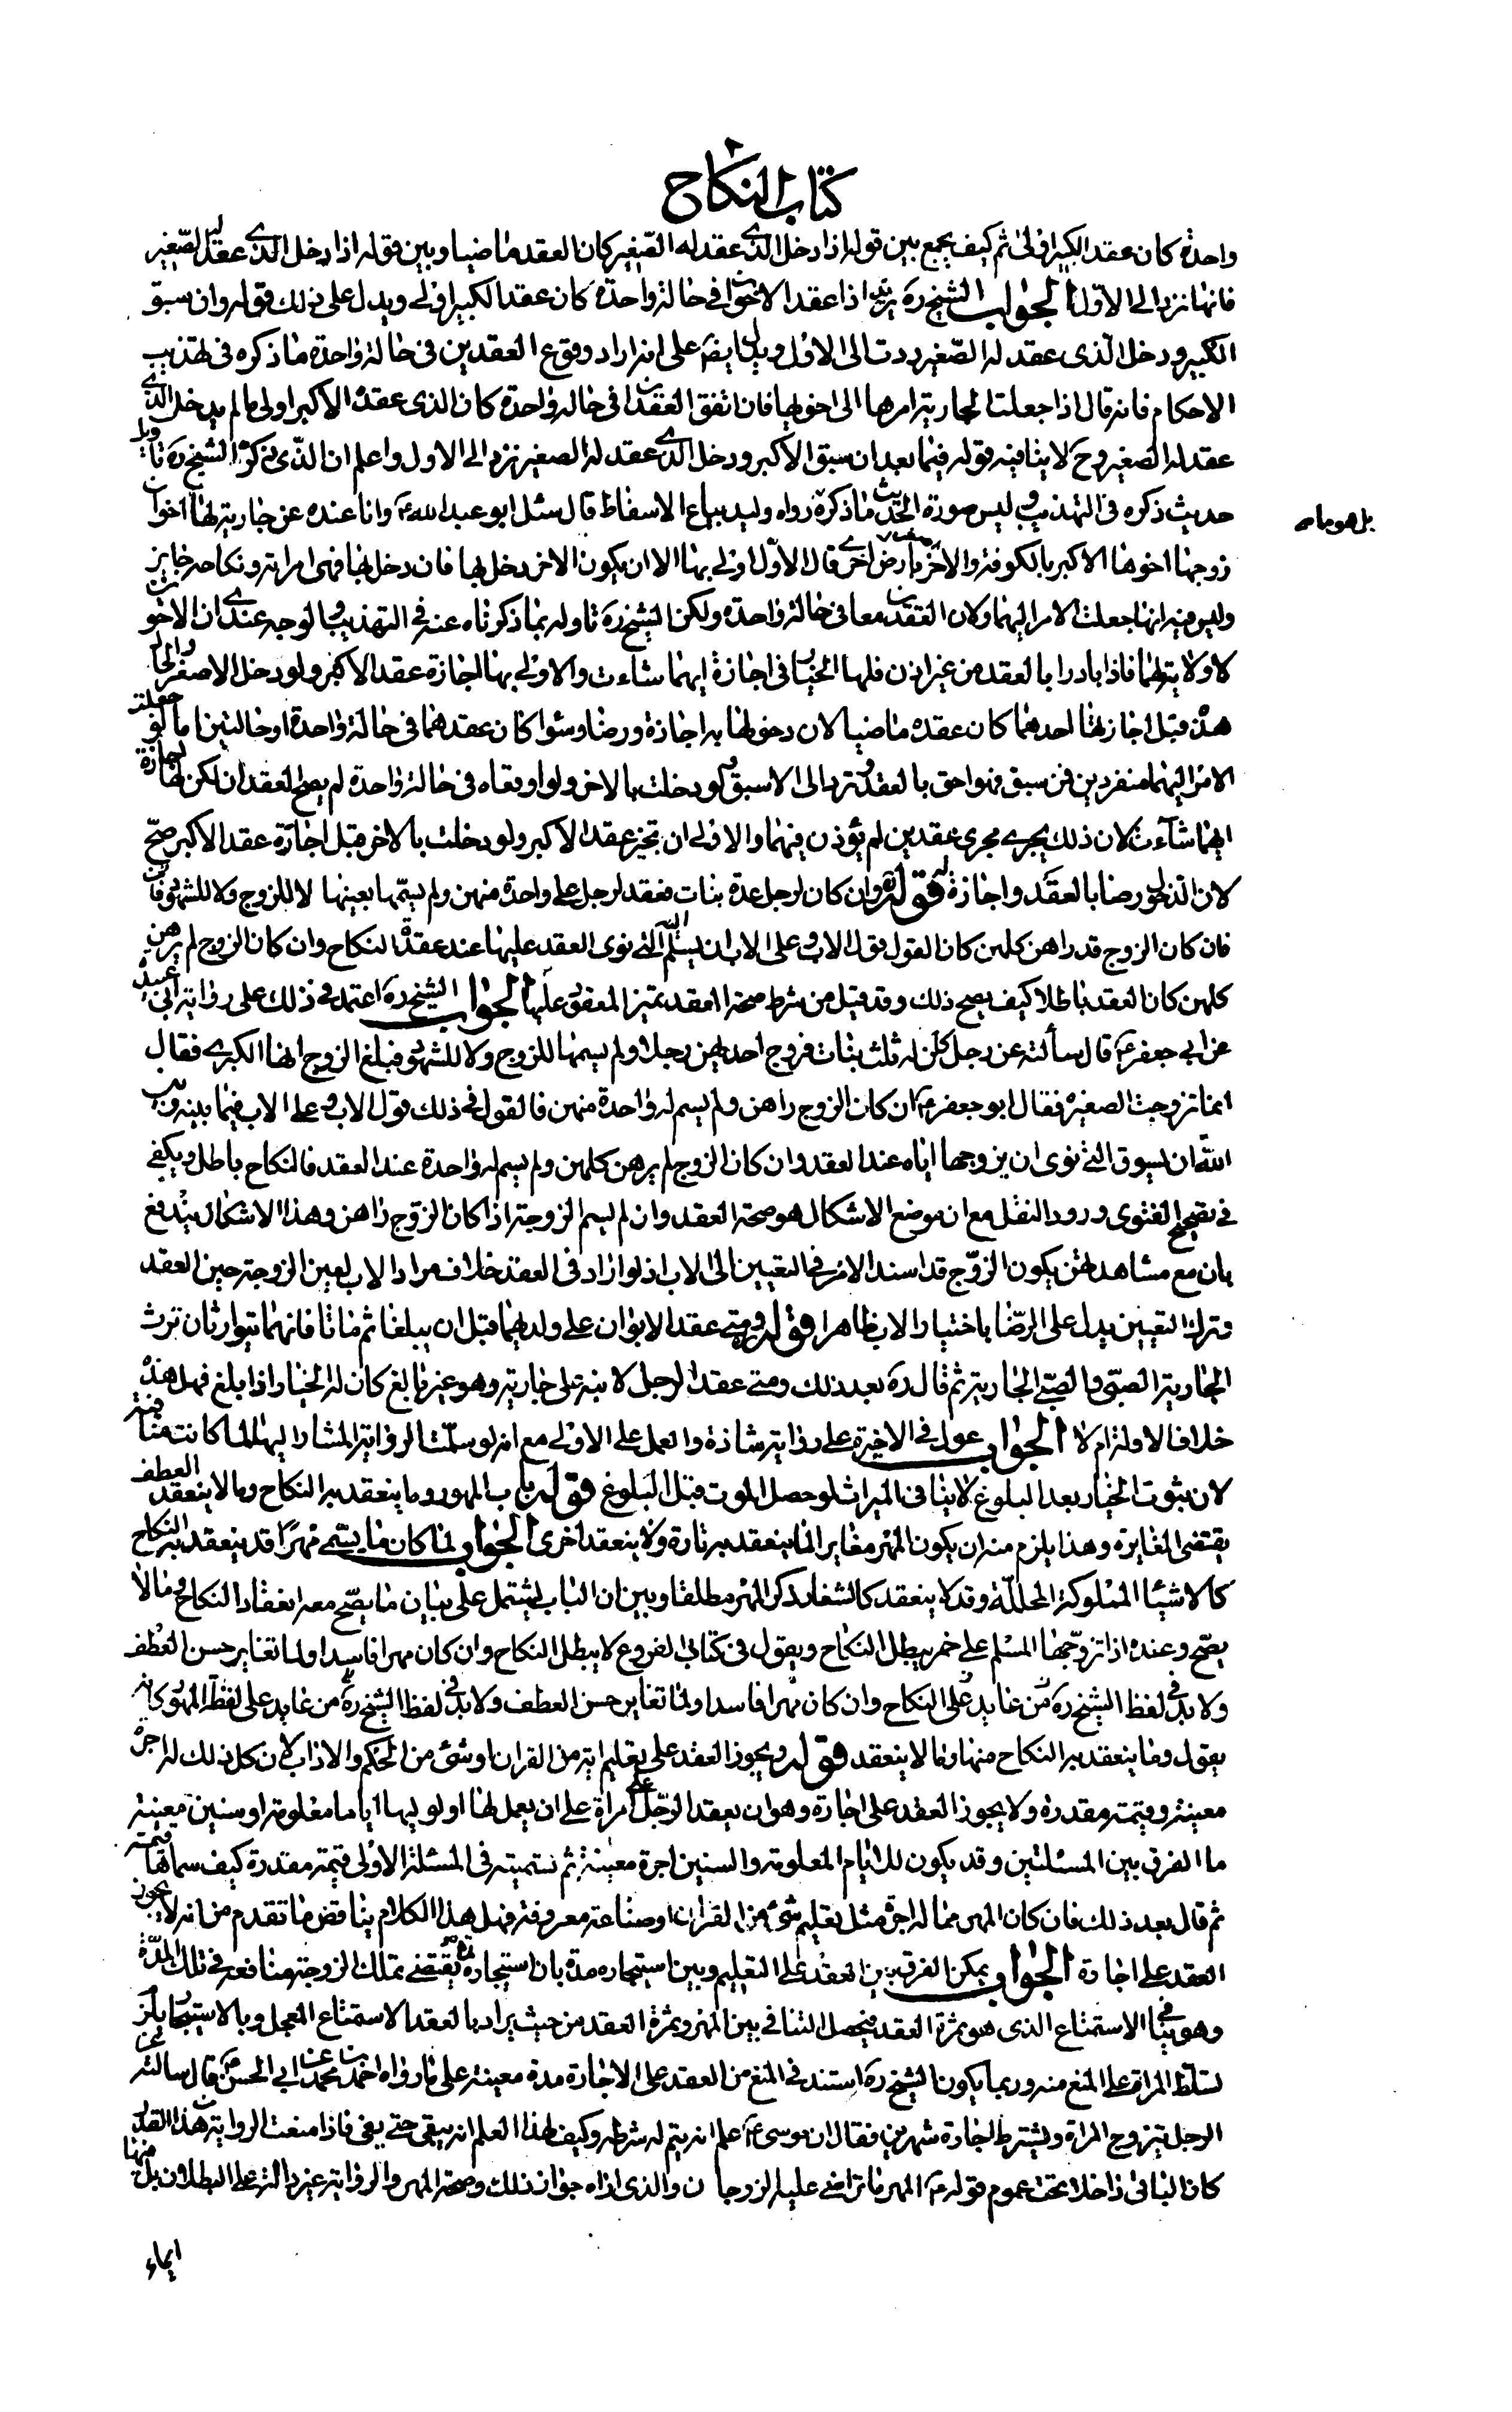 كتاب النكاح
واحدة كان عقد الكبير اولى ثم كيف يجمع بين قوله اذا دخل الذى عقد له الصغير كان العقد ماضيا وبين قوله اذا دخل الذى عقد له الصغير
فانها ترد الى الاول الجواب الشيخ ره يريد اذا عقد الاخوان فى حالة واحدة كان عقد الكبير اولى ويدل على ذلك قوله وان سبق
الكبير ودخل الذى عقد له الصغير ردت الى الاول ويدل ايضا على انه اراد وقوع العقدين فى حالة واحدة ما ذكره فى تهذيب
الاحكام فانه قال اذا جعلت الجارية امرها الى اخويها فان اتفق العقدان فى حالة واحدة كان الذى عقده الاكبر اولى ما لم يدخل الذى
عقد له الصغير وح لا ينافيه قوله فيما بعد ان سبق الاكبر ودخل الذى عقد له الصغير ترد الى الاول واعلم ان الذى ذكره الشيخ ره تاويل
حديث ذكره فى التهذيب وليس صورة الحديث ما ذكره رواه وليد بياع الاسفاط قال سئل ابو عبد الله ع وانا عنده عن جارية لها اخوان
بل هو ما
زوجها اخوها الاكبر بالكوفة والاخر بارض اخرى قال الاول اولى بها الا ان يكون الاخر دخل بها فان دخل بها فهى امراته ونكاحه جايز
وليس فيه انها جعلت الامر اليهما ولا ان العقدين معا فى حالة واحدة ولكن الشيخ ره تاوله بما ذكرناه عنه فى التهذيب والوجه عندى ان الاخوين
لا ولاية لهما فاذا بادرا بالعقد من غير اذن فلها الخيار فى اجازة ايهما شاءت والاولى بها اجازة عقد الاكبر ولو دخل الاصغر والحال
هذه قبل اجازتها احدهما كان عقده ماضيا لان دخولها به اجازة ورضا وسوا كان عقدهما فى حالة واحدة او حالتين اما لو جعلت
الامر اليهما منفردين فمن سبق فهو احق بالعقد وترد الى الاسبق ولو دخلت بالاخر ولو اوقعاه فى حالة واحدة لم يصح العقدان لكن لها اجازة
ايهما شاءت لان ذلك يجرى مجرى عقدين لم يؤذن فيهما والاولى ان تجيز عقد الاكبر ولو دخلت بالاخر قبل اجازة عقد الاكبر صح
لان الدخول رضا بالعقد واجازة له قوله وان كان لرجل عدة بنات فعقد لرجل على واحدة منهن ولم يسمها بعينها لا للزوج ولا للشهود فان
فان كان الزوج قد راهن كلهن كان القول قول الاب وعلى الاب ان يسلم اليه التى نوى العقد عليها عند عقدة النكاح وان كان الزوج لم يرهن
كلهن كان العقد باطلا كيف يصح ذلك وقد قيل من شرط صحة العقد تميز المعقود عليها الجواب الشيخ ره اعتمد فى ذلك على رواية ابى عبيدة
عن ابى جعفر ع قال سألته عن رجل كن له ثلث بنات فزوج احديهن رجلا ولم يسمها للزوج ولا للشهود فبلغ الزوج انها الكبرى فقال
انما تزوجت الصغيرة فقال ابو جعفر ع ان كان الزوج راهن ولم يسم له واحدة منهن فالقول فى ذلك قول الاب وعلى الاب فيما بينه وبين
الله ان يسوق التى نوى ان يزوجها اياه عند العقد وان كان الزوج لم يرهن كلهن ولم يسم له واحدة عند العقد فالنكاح باطل ويكفى
فى تصحيح الفتوى ورود النقل مع ان موضع الاشكال هو صحة العقد وان لم يسم الزوجة اذا كان الزوج راهن وهذا الاشكال يندفع
بان مع مشاهدتهن يكون الزوج قد اسند الامر فى التعيين الى الاب اذ لو اراد فى العقد خلاف مراد الاب لعين الزوجة حين العقد
وترك التعيين يدل على الرضا باختيار الاب ظاهرا قوله ومتى عقد الابوان على ولديهما قبل ان يبلغا ثم ماتا فانهما يتوارثان ترث
الجارية الصبى والصبى الجارية ثم قال ره بعد ذلك ومتى عقد الرجل لابنه على جارية وهو غير بالغ كان له الخيار اذا بلغ فهل هذه
خلاف الاولة ام لا الجواب عول فى الاخيرة على رواية شاذة والعمل على الاولى مع انه لو سلمت الرواية المشار اليها لما كانت منافية
لان ثبوت الخيار بعد البلوغ لا ينافى الميراث لو حصل الموت قبل البلوغ قوله باب المهور وما ينعقد به النكاح وما لا ينعقد العطف
يقتضى المغايرة وهذا يلزم منه ان يكون المهر مغاير الما ينعقد به تارة ولا ينعقد اخرى الجواب لما كان ما يسمى مهرا قد ينعقد به النكاح
كالاشيا المملوكة المحللة وقد لا ينعقد كالشغار ذكر المهر مطلقا وبين ان الباب يشتمل على بيان ما يصح معه انعقاد النكاح وما لا
يصح وعنده اذا تزوجها المسلم على خمر يبطل النكاح ويقول فى كتابى الفروع لا يبطل النكاح وان كان مهرا فاسدا ولما تغاير حسن العطف
ولا بد فى لفظ الشيخ ره من عايد على النكاح وان كان مهرا فاسدا ولما تغاير حسن العطف ولا بد فى لفظ الشيخ ره من عايد على لفظة المهور كانه
يقول وما ينعقد به النكاح منها وما لا ينعقد قوله ويجوز العقد على تعليم اية من القران او شئ من الحكم والاداب لان كل ذلك له اجرة
معينة وقيمة مقدرة ولا يجوز العقد على اجارة وهو ان يعقد الرجل على امراة على ان يعمل لها او لوليها اياما معلومة او سنين معينة
ما الفرق بين المسئلتين وقد يكون للايام المعلومة والسنين اجرة معينة ثم تسميته فى المسئلة الاولى قيمة مقدرة كيف سماها قيمة
ثم قال بعد ذلك فان كان المهر مما له اجرة مثل تعليم شئ من القران او صناعة معروفة فهل هذا الكلام يناقض ما تقدم من انه لا يجوز
العقد على اجارة الجواب يمكن الفرق بين العقد على التعليم وبين استيجاره مدة بان استيجاره يقتضى تملك الزوجة منافعه فى تلك المدة
وهو ينافى الاستمتاع الذى هو ثمرة العقد فيحصل التنافى بين المهر وثمرة العقد من حيث يراد بالعقد الاستمتاع المعجل وبالاستيجار يلزم
تسلط المراة على المنع منه وربما يكون الشيخ ره استند فى المنع من العقد على الاجارة مدة معينة على ما رواه احمد بن محمد عن ابى الحسن ع قال سالته عن
الرجل يتزوج المراة ويشترط اجارة شهرين فقال ان موسى ع علم انه يتم له شرطه وكيف لهذا العلم انه يبقى حتى يفى فاذا منعت الرواية هذا القدر
كان الباقى داخلا تحت عموم قوله ع المهر ما تراضى عليه الزوجان والذى اراه جواز ذلك وصحة المهر والرواية غير دالة على البطلان بل فيها
ايماء